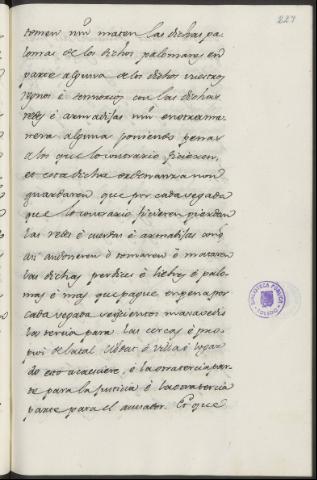 227
tomen nin maten las dichas pa-
lomas de los dichos palomares en
parte alguna de los dichos vuestros
regnos é señorios con las dichas
redes é armadijas nin en otra ma-
nera alguna poniendo penas
a los que lo contrario ficieren,
et esta dicha ordenanza non
guardaren que por cada vegada
que lo contrario ficieren pierdan
las redes é cuerdas é armadijas con q
asi andovieren ó tomaren ó mataren
las dichas perdices é liebres é palo-
mas é mas que pague en pena por
cada vegada seiscientos maravedis
la tercia para las cercas é pro-
pios de la tal cibdat ó villa ó logar
do esto acaesciere, é la otra tercia par-
te para la justicia é la otra tercia
parte para el acusador. Et que
BIBLIOTECA PÚBLICA
TOLEDO